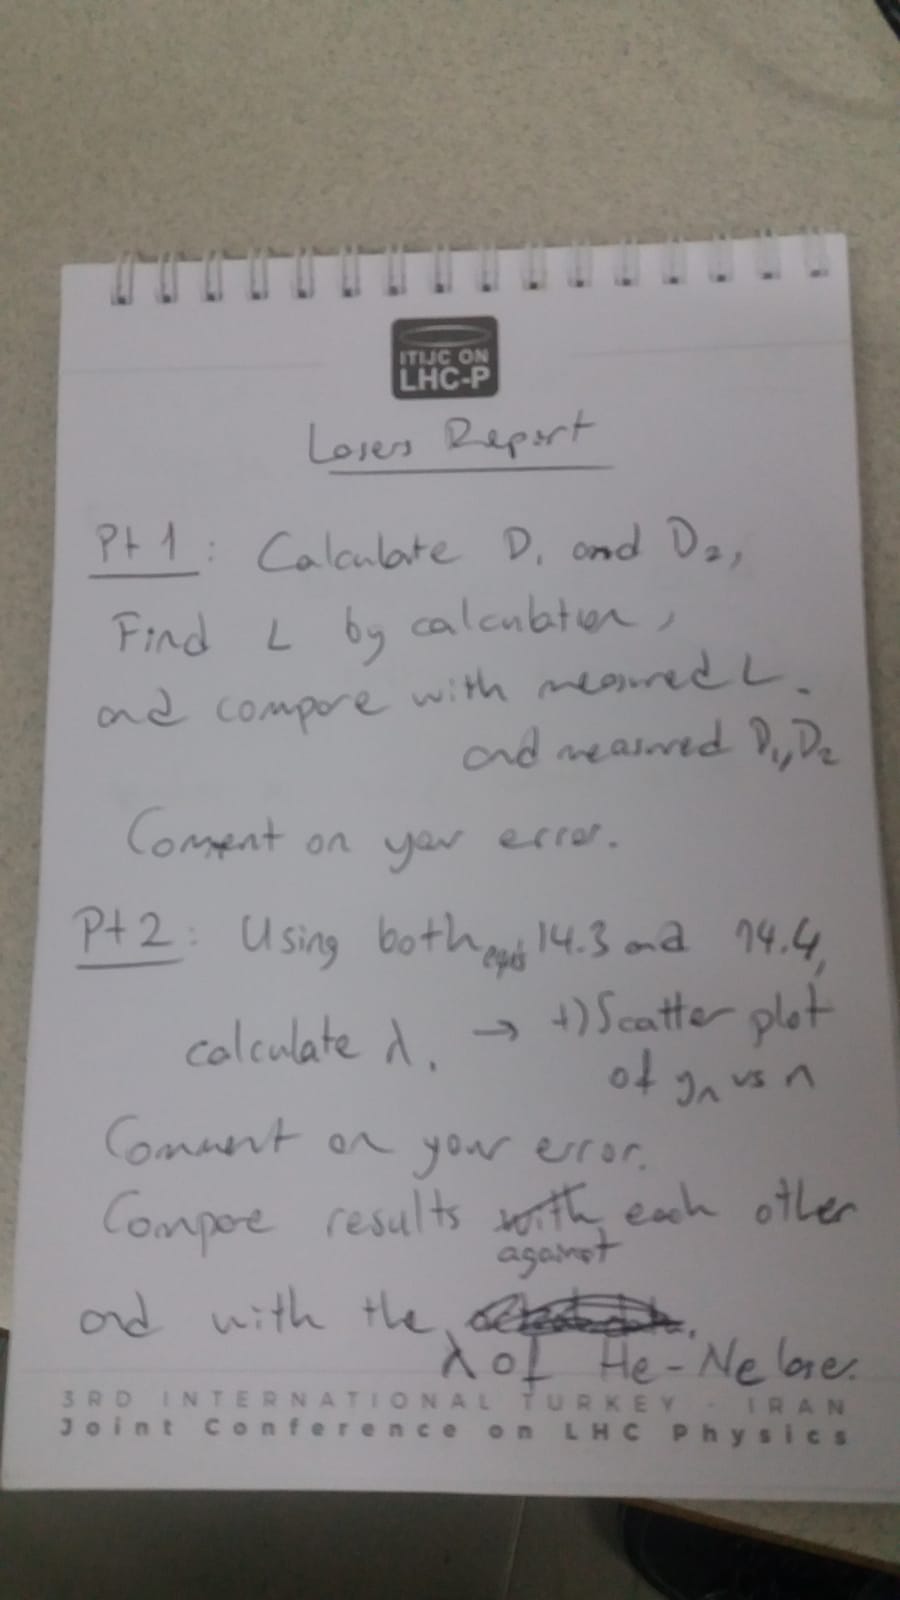 ITIJC ON
LHC-P
Lasers Report
Pt 1: Calculate D1 and D2,
Find L by calculation,
and compare with measured L.
and measured D1, D2
Coment on your error.
Pt 2: Using both eqs 14.3 and 14.4,
calculate λ. → +) Scatter plot
of yn vs n
Comment on your error.
Compare results with each other
against
and with the
λ of He-Ne laser.
3RD INTERNATIONAL TURKEY - IRAN
Joint Conference on LHC Physics